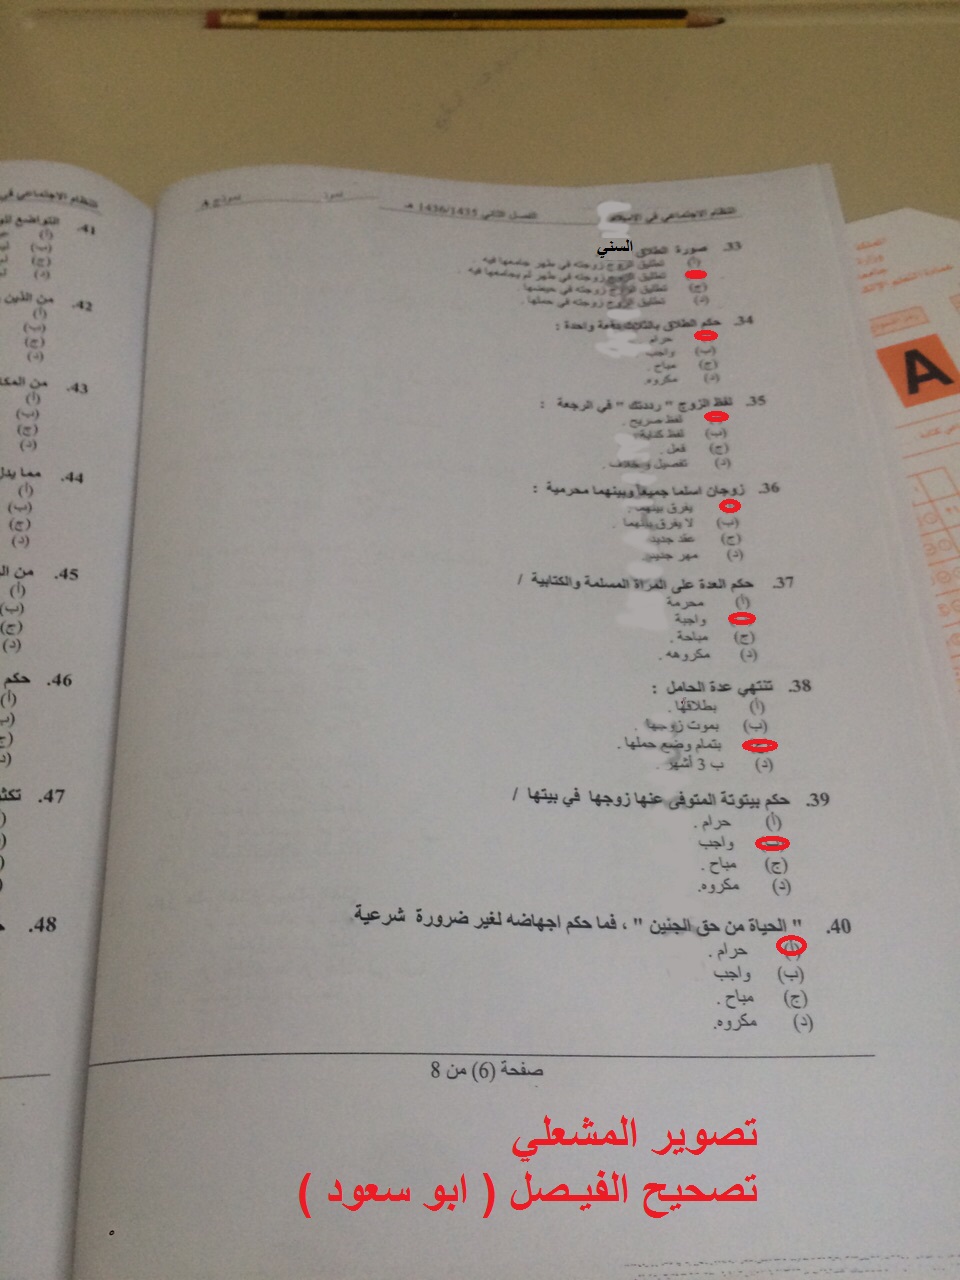 النظام الاجتماعي في الإسلام الفصل الثاني 1436/1435 هـ نموذج A
33. صورة الطلاق السني
(أ) تطليق الزوج زوجته في طهر جامعها فيه .
تطليق الزوج زوجته في طهر لم يجامعها فيه .
(ج) تطليق الزوج زوجته في حيضها .
(د) تطليق الزوج زوجته في حملها .
34. حكم الطلاق بالثلاث دفعة واحدة :
حرام .
(ب) واجب
(ج) مباح .
(د) مكروه.
35. لفظ الزوج " رددتك " في الرجعة :
لفظ صريح .
(ب) لفظ كناية.
(ج) فعل .
(د) تفصيل وخلاف .
36. زوجان اسلما جميعا وبينهما محرمية :
يفرق بينهما .
(ب) لا يفرق بينهما .
(ج) عقد جديد
(د) مهر جديد
37. حكم العدة على المرأة المسلمة والكتابية /
(أ) محرمة
واجبة
(ج) مباحة .
(د) مكروهه .
38. تنتهي عدة الحامل :
(أ) بطلاقها .
(ب) بموت زوجها .
بتمام وضع حملها .
(د) ب 3 أشهر .
39. حكم بيتوتة المتوفى عنها زوجها في بيتها /
(أ) حرام .
واجب
(ج) مباح .
(د) مكروه.
40. " الحياة من حق الجنين " ، فما حكم اجهاضه لغير ضرورة شرعية
(أ) حرام .
(ب) واجب
(ج) مباح .
(د) مكروه.
صفحة (6) من 8
تصوير المشعلي
تصحيح الفيصل ( ابو سعود )
النظام الاجتماعي في
41. التواضع
(أ)
(ب)
(ج)
(د)
42. من الذين
(أ)
(ب)
(ج)
(د)
43. من المكا
(أ)
(ب)
(ج)
(د)
44. مما يدل
(أ)
(ب)
(ج)
(د)
45. من ال
(أ)
(ب)
(ج)
(د)
46. حكم
(أ)
(ب)
(ج)
(د)
47. تكث
48.
A